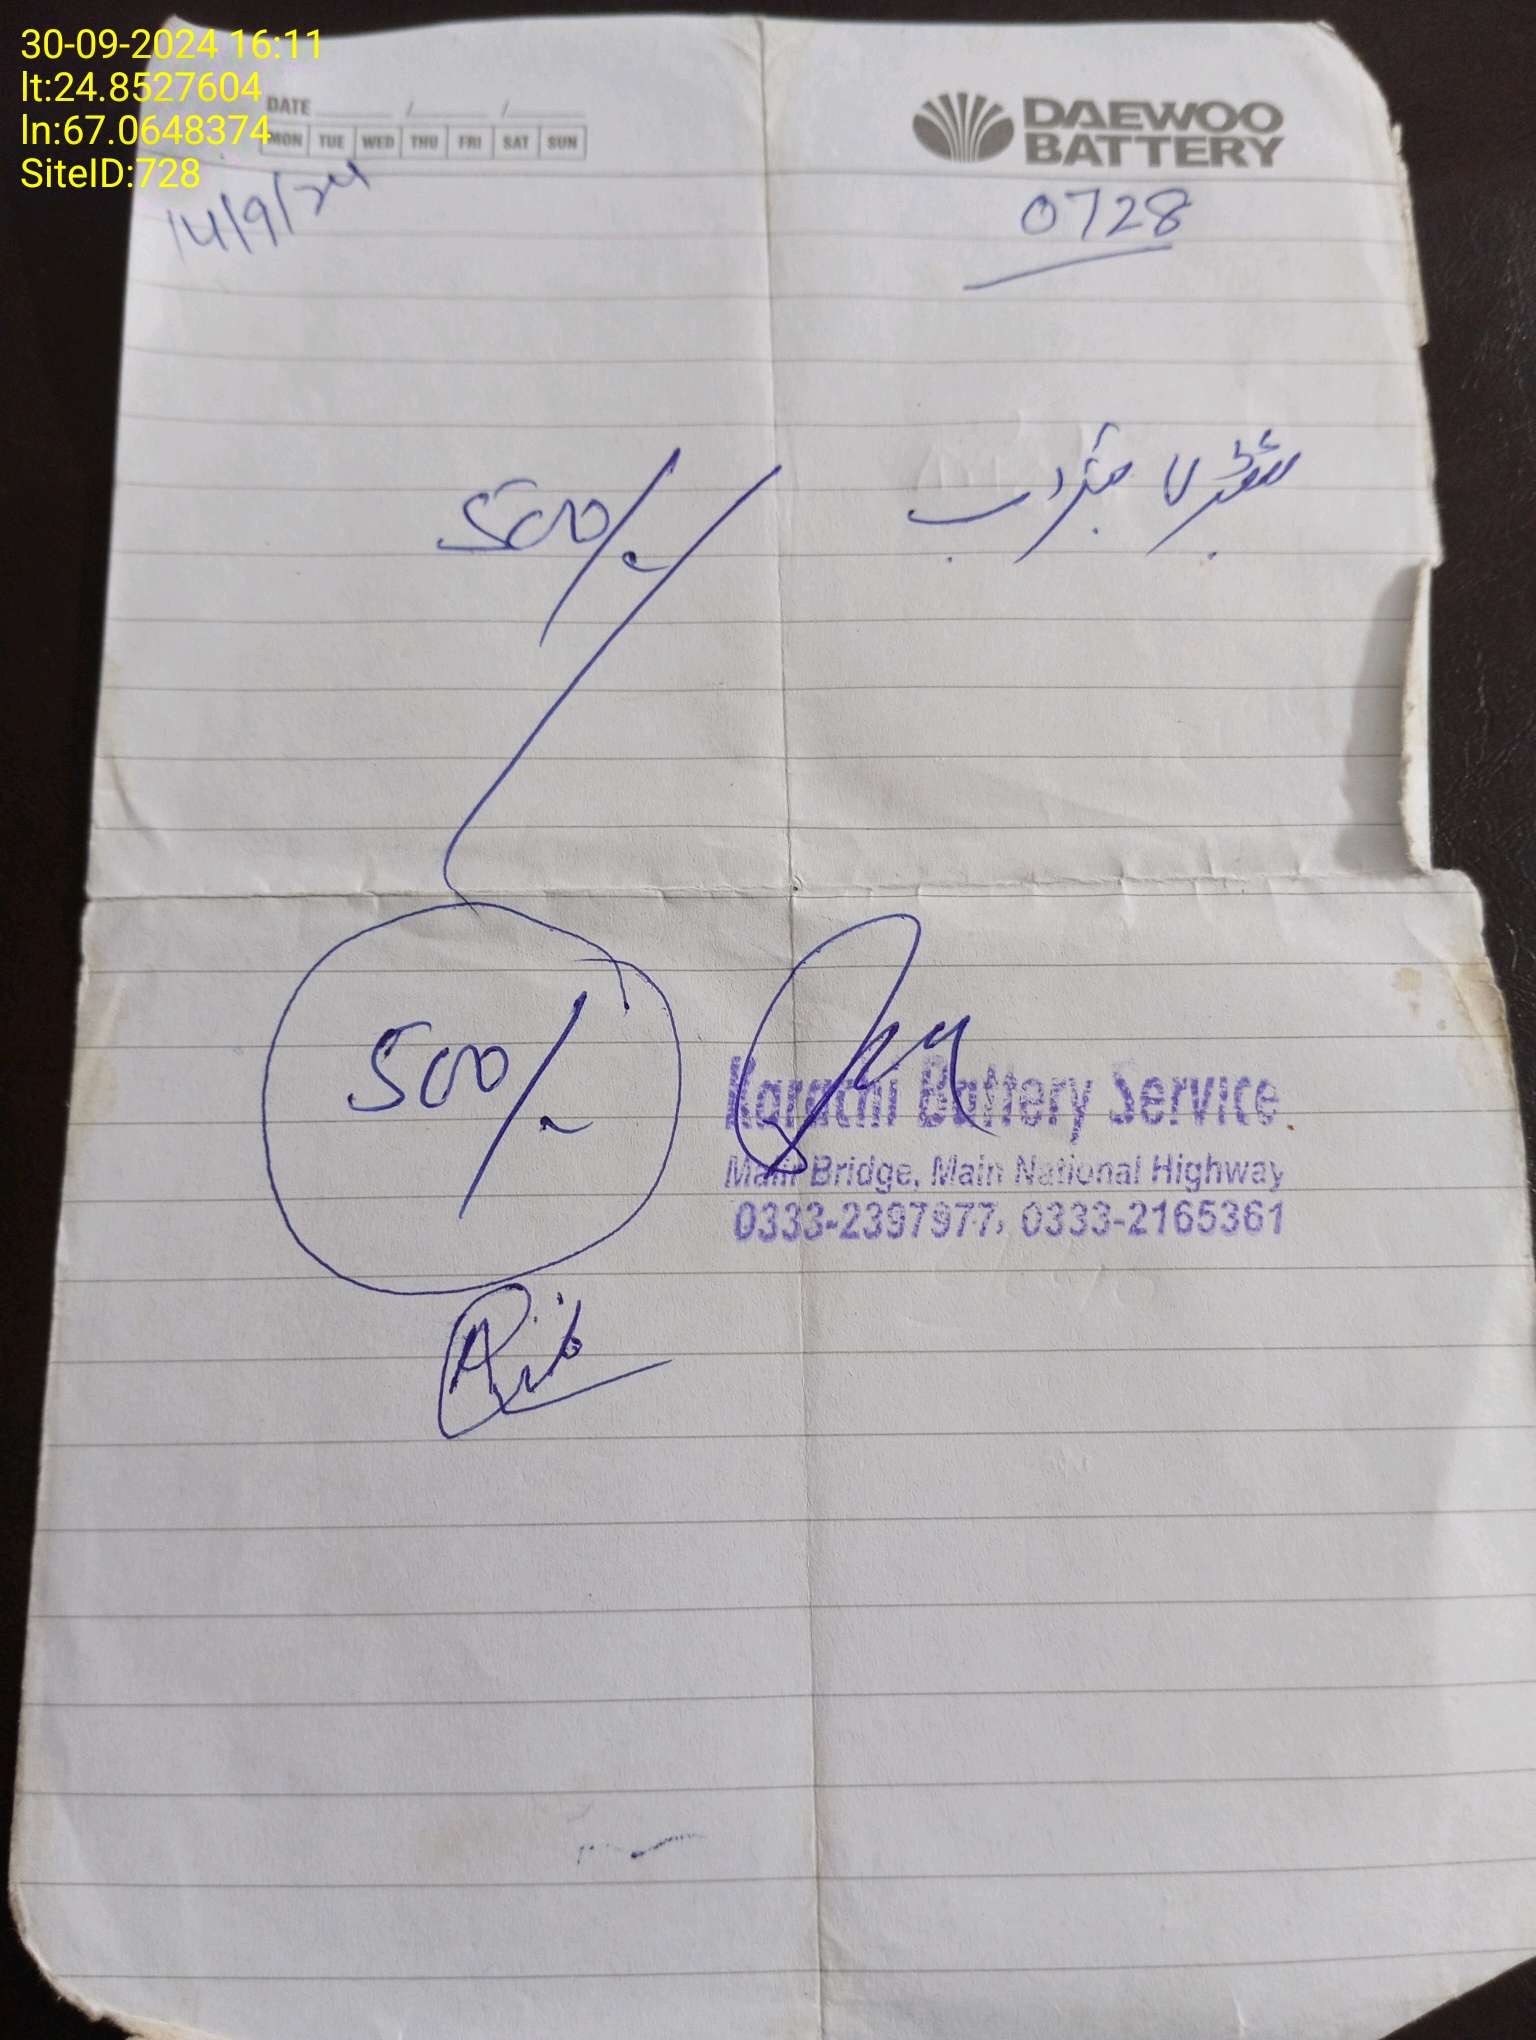 30-09-2024 16:11
lt:24.8527604
ln:67.0648374
SiteID:728
DATE / /
MON TUE WED THU FRI SAT SUN
14/9/24
DAEWOO
BATTERY
0728
500/-
500/-
Karachi Battery Service
Malir Bridge, Main National Highway
0333-2397977, 0333-2165361